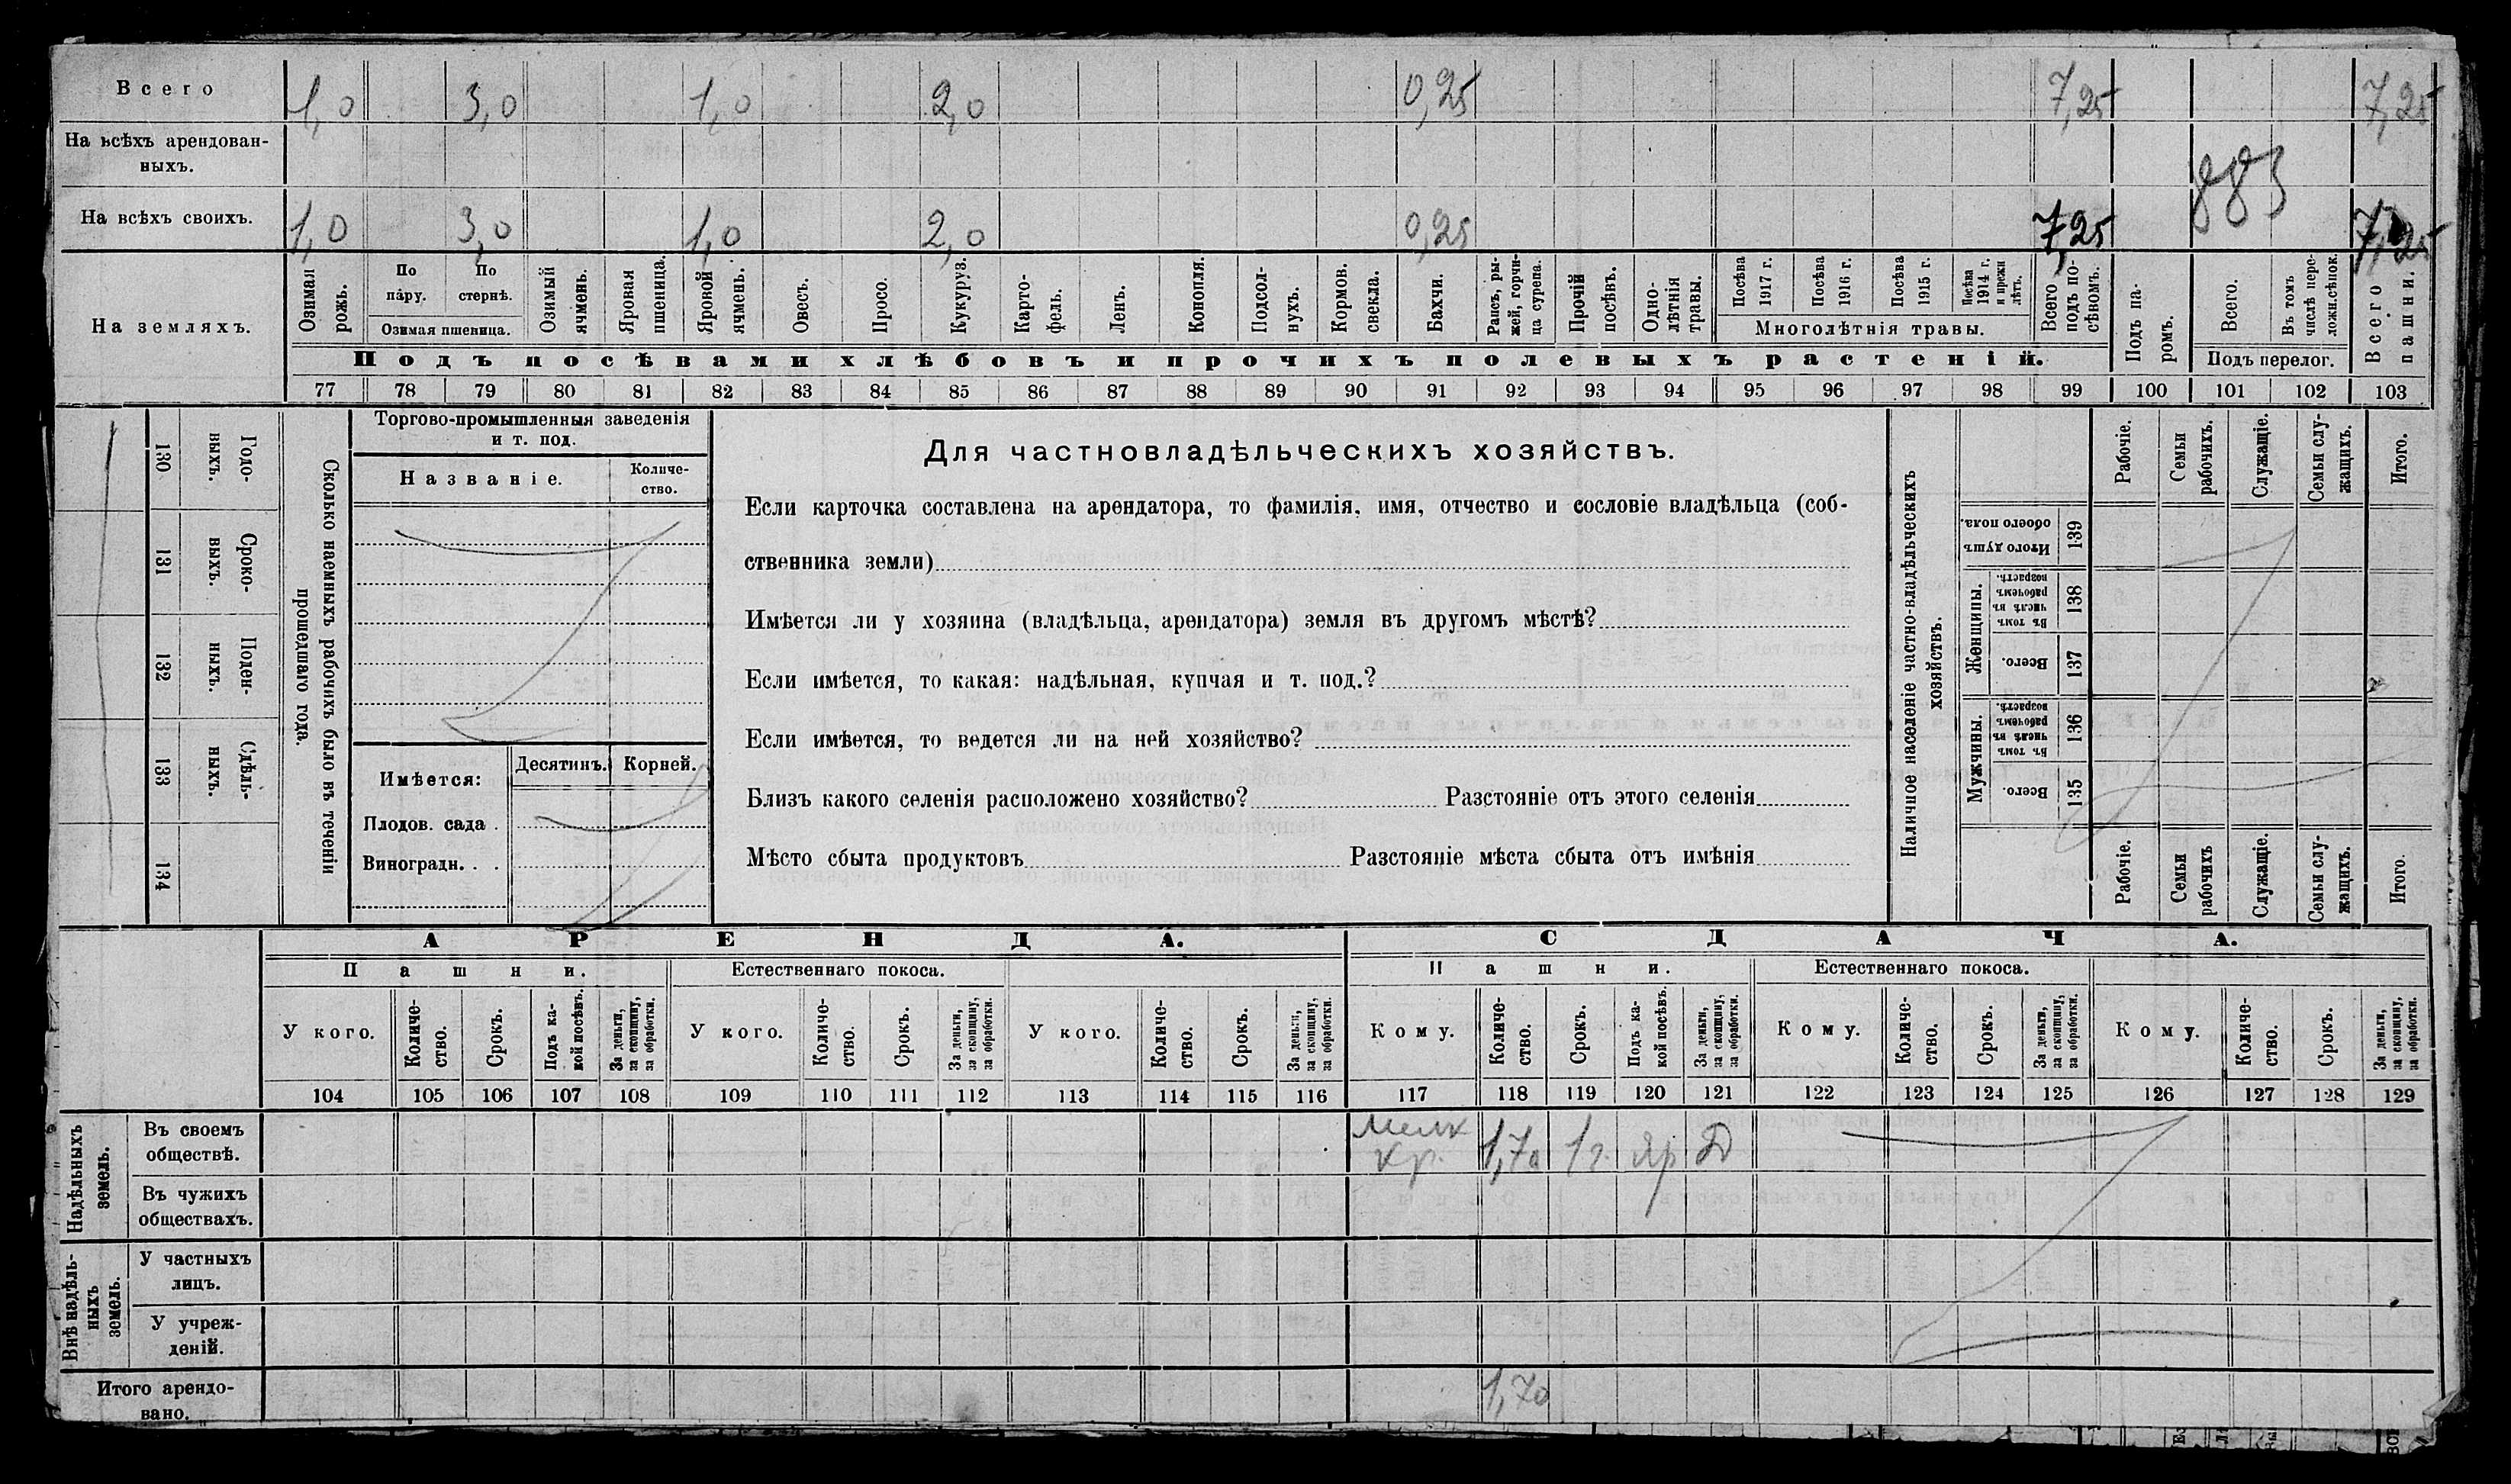 Всего 1,0 3,0 1,0 2,0 0,25 7,25 7,25
На всѣхъ арендован-
ныхъ.
883
На всѣхъ своихъ. 1,0 3,0 1,0 2,0 0,25 7,25 7,25
На земляхъ.
Озимая рожь.
По пару.
По стернѣ.
Озимая пшеница.
Озимый ячмень.
Яровая пшеница.
Яровой ячмень.
Овесъ.
Просо.
Кукуруз.
Карто-
фель.
Ленъ.
Конопля.
Подсол-
нухъ.
Кормов. свекла.
Бахчи.
Рапсъ, ры-
жей, горчи-
ца сурепа.
Прочій посѣвъ.
Одно-
лѣтнія травы.
Посѣва 1917 г.
Посѣва 1916 г.
Посѣва 1915 г.
Посѣва 1914 г. и прежн лѣтъ.
Многолѣтнія травы.
Всего подъ по-
сѣвомъ.
Подъ па-
ромъ.
Всего.
Въ томъ числѣ пере-
ложн.сѣнок.
Подъ перелог.
Всего пашни.
Подъ посѣвами хлѣбовъ и прочихъ полевыхъ растеній.
77 78 79 80 81 82 83 84 85 86 87 88 89 90 91 92 93 94 95 96 97 98 99 100 101 102 103
130 Годо-
выхъ.
131 Сроко-
выхъ.
132 Поден-
ныхъ.
133 Сдѣль-
ныхъ.
134
Сколько наемныхъ рабочихъ было въ теченіи
прошедшаго года.
Торгово-промышленныя заведенія
и т. под.
Названіе.
Количе-
ство.
Имѣется:
Десятинъ.
Корней.
Плодов. сада .
Виноградн. . .
Для частновладѣльческихъ хозяйствъ.
Если карточка составлена на арендатора, то фамилія, имя, отчество и сословіе владѣльца (соб-
ственника земли)
Имѣется ли у хозяина (владѣльца, арендатора) земля въ другомъ мѣстѣ?
Если имѣется, то какая: надѣльная, купчая и т. под.?
Если имѣется, то ведется ли на ней хозяйство?
Близъ какого селенія расположено хозяйство? Разстояніе отъ этого селенія
Мѣсто сбыта продуктовъ Разстояніе мѣста сбыта отъ имѣнія
Наличное населеніе частно-владѣльческихъ
хозяйствъ.
Рабочіе.
Семьи рабочихъ.
Служащіе.
Семьи слу-
жащихъ.
Итого.
Итого душъ обоего пола. 139
Женщины.
Въ томъ числѣ въ рабочемъ возрастѣ. 138
Всего. 137
Мужчины.
Въ томъ числѣ въ рабочемъ возрастѣ. 136
Всего. 135
Рабочіе.
Семьи рабочихъ
Служащіе.
Семьи слу-
жащихъ.
Итого.
АРЕНДА. СДАЧА.
Пашни. Естественнаго покоса. Пашни. Естественнаго покоса.
У кого.
Количе-
ство.
Срокъ.
Подъ ка-
кой посѣвъ.
За деньги, за скопщину, за обработки.
У кого.
Количе-
ство.
Срокъ.
За деньги, за скопщину, за обработки.
У кого.
Количе-
ство.
Срокъ.
За деньги, за скопщину, за обработки.
Кому.
Количе-
ство.
Срокъ.
Подъ ка-
кой посѣвъ.
За деньги, за скопщину, за обработки.
Кому.
Количе-
ство.
Срокъ.
За деньги, за скопщину, за обработки.
Кому.
Количе-
ство.
Срокъ.
За деньги, за скопщину, за обработки.
104 105 106 107 108 109 110 111 112 113 114 115 116 117 118 119 120 121 122 123 124 125 126 127 128 129
Надѣльныхъ земель.
Въ своемъ
обществѣ.
Мелк
кр. 1,70 1 г. яр Д
Въ чужихъ
обществахъ.
Внѣ надѣль-
ныхъ земель.
У частныхъ
лицъ.
У учреж-
деній.
Итого арендо-
вано.
1,70